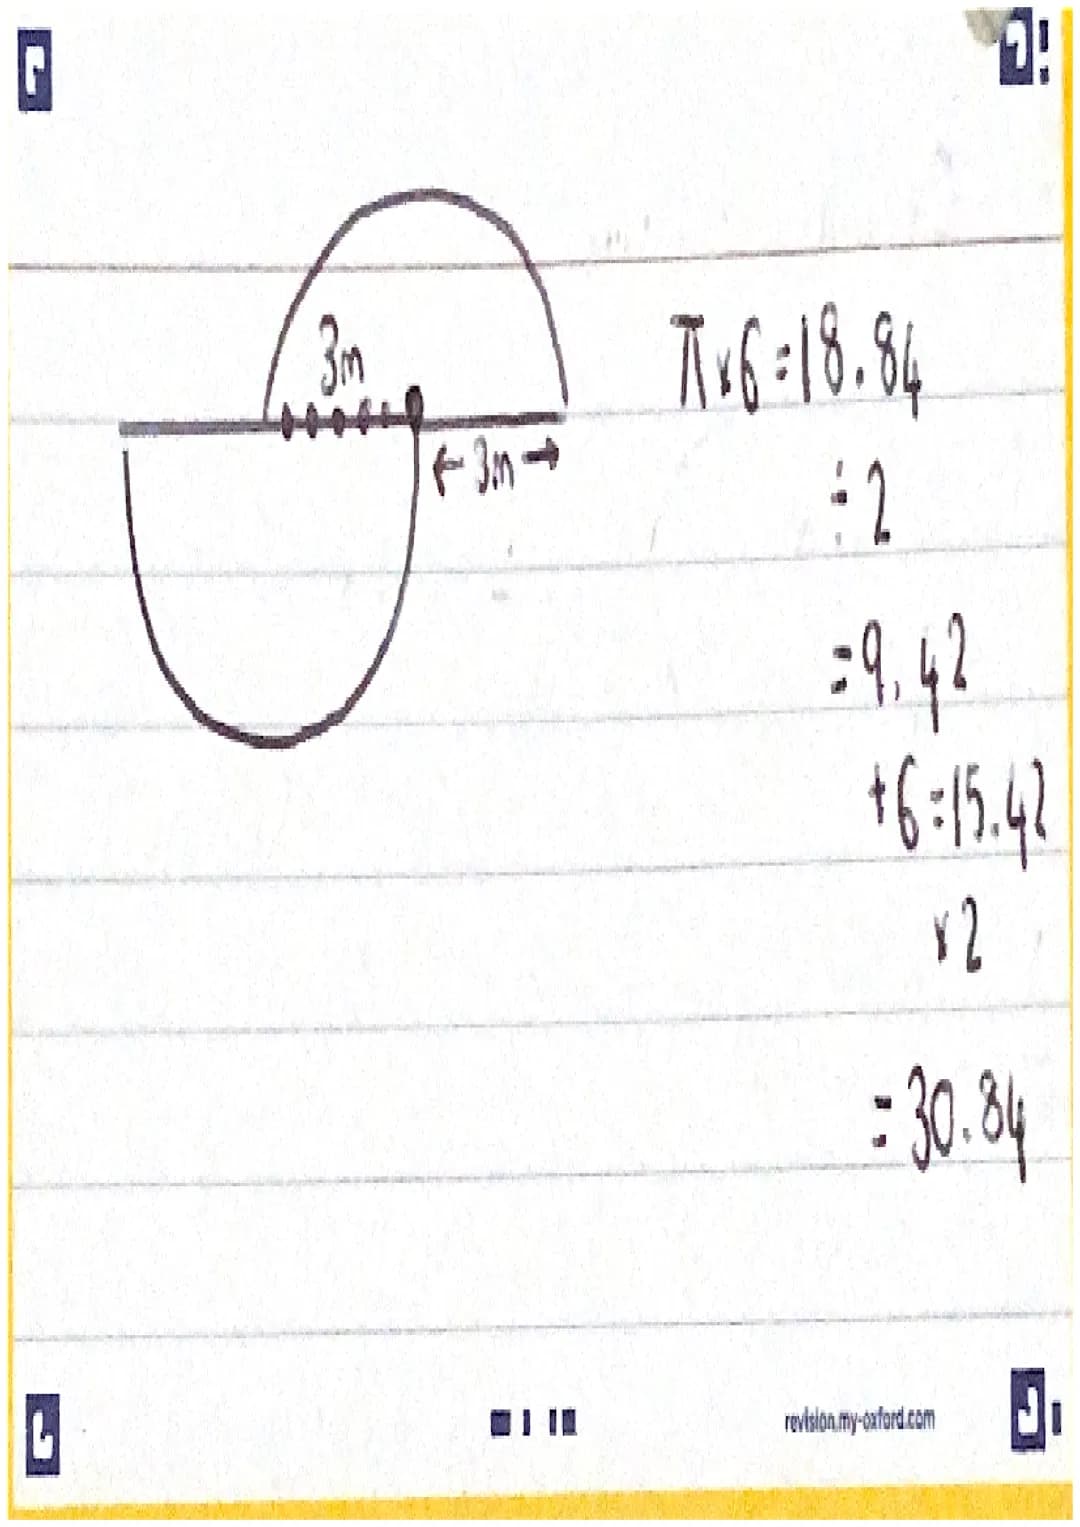 3m
← 3m →
π×6=18.84
÷2
=9.42
+6=15.42
×2
=30.84
revision.my-oxford.com